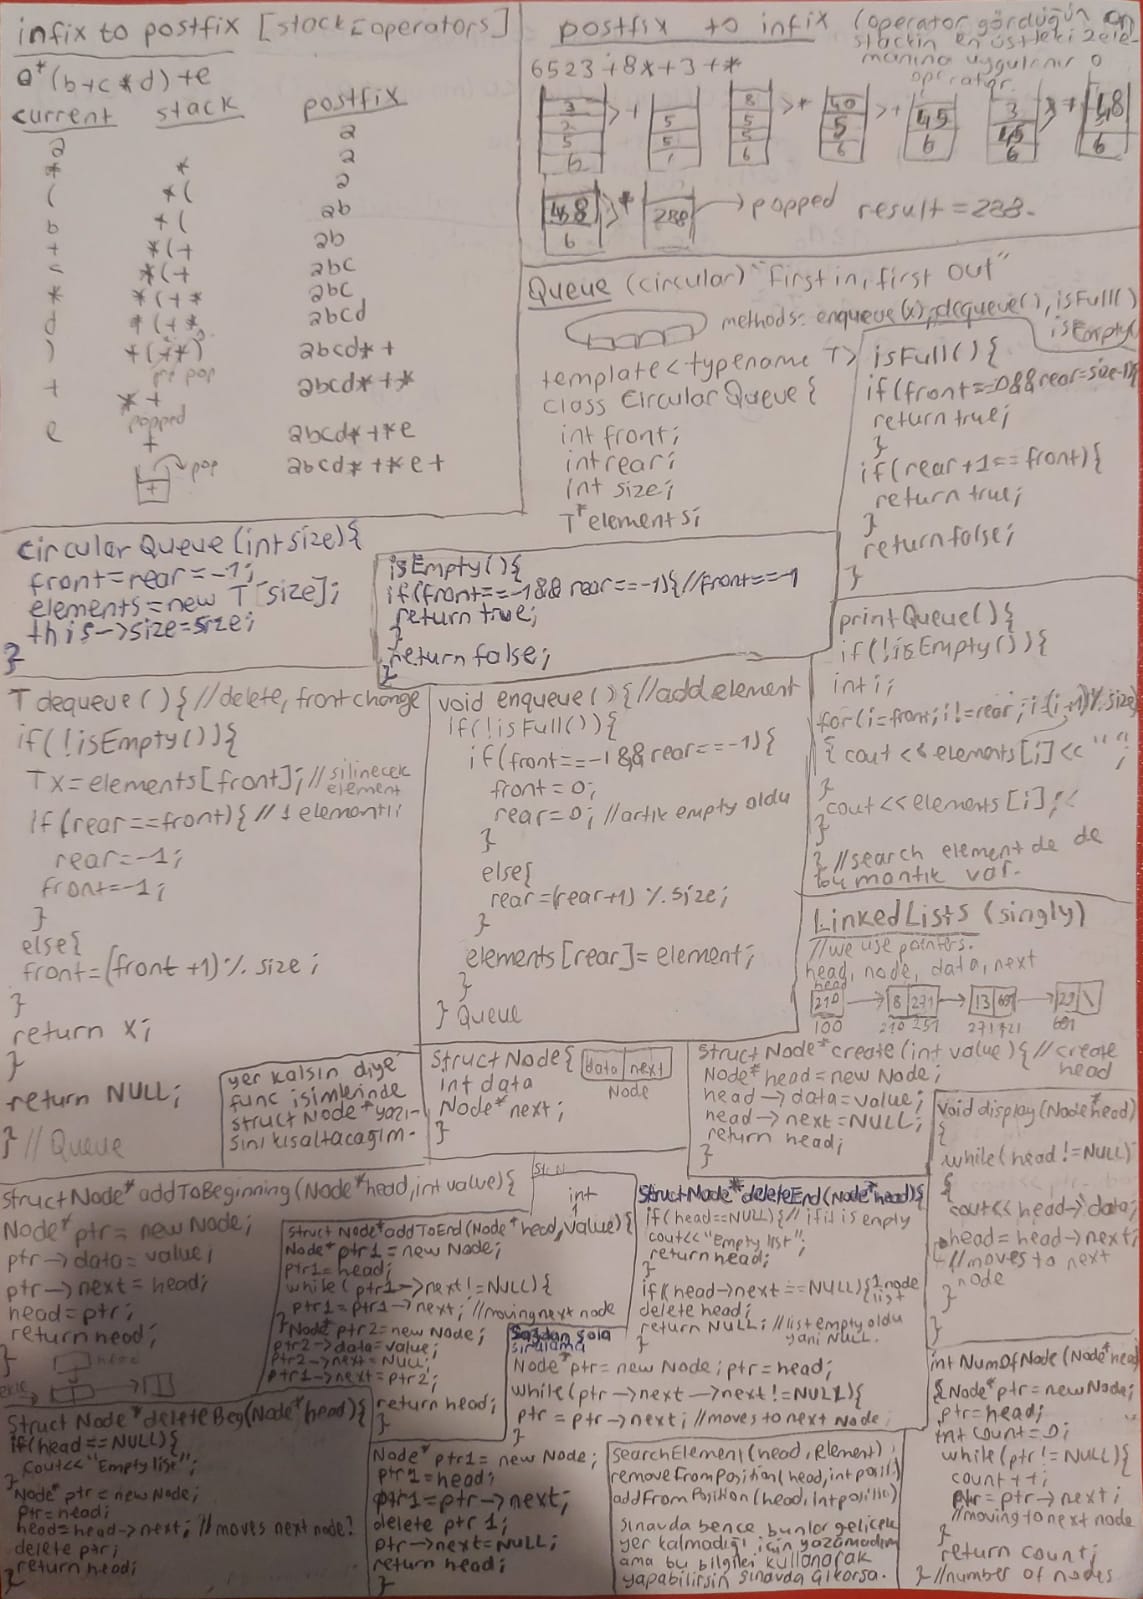 infix to postfix [stack[operators]
a*(b+c*d)+e
current stack postfix
a a
* * a
( *( a
b *( ab
+ *(+ ab
c *(+ abc
* *(+* abc
d *(+* abcd
) *(+*) abcd*+
pop
+ *+ abcd*+*
popped
e + abcd*+*e
pop abcd*+*e+
+
postfix to infix (operator gördüğün an
stackin en üstteki 2 ele-
manına uygulanır o
operatör.
6523+8*+3+*
3 2 5 6 >+ 5 5 8 5 5 6 >* 40 5 6 >+ 45 6 3 45 6 >+ 48 6
48 6 >* 288 → popped result = 288.
Queue (circular) "First in, first out"
methods: enqueue(x), dequeue(), isFull()
isEmpty()
template<typename T>
class CircularQueue{
int front;
int rear;
int size;
T* elements;
isFull(){
if(front==0&&rear=size-1){
return true;
}
if(rear+1==front){
return true;
}
return false;
}
CircularQueue(int size){
front=rear=-1;
elements=new T[size];
this->size=size;
}
isEmpty(){
if(front==-1&& rear==-1){//front==-1
return true;
}
return false;
}
printQueue(){
if(!isEmpty()){
int i;
for(i=front; i!=rear; i=(i+1)%size)
{ cout << elements[i]<< " ";
}
cout << elements[i];
}
} //search element de de
bu mantık var.
T dequeue(){ //delete, front change
if(!isEmpty()){
T x=elements[front]; //silinecek
element
if(rear==front){ //1 elementli
rear=-1;
front=-1;
}
else{
front=(front+1)% size;
}
return x;
}
return NULL;
} // Queue
void enqueue(){ //add element
if(!isFull()){
if(front==-1&&rear==-1){
front=0;
rear=0; //artık empty oldu
}
else{
rear=(rear+1)%size;
}
elements[rear]= element;
}
} Queue
Linked Lists (singly)
//we use pointers.
head, node, data, next
head
210 → 8 271 → 13 601 → 29
100 210 251 271 601
yer kalsın diye
func isimlerinde
struct Node* yazı-
sını kısaltacağım.
struct Node{ data next
int data Node
Node* next;
}
struct Node* create(int value){ //create
head
Node* head = new Node;
head->data=value;
head->next=NULL;
return head;
}
void display(Node* head)
{
while(head!=NULL)
{
cout<< head->data;
head=head->next;
//moves to next
node
}
}
struct Node* addToBeginning(Node* head, int value){
Node* ptr = new Node;
ptr->data = value;
ptr->next = head;
head=ptr;
return head;
}
head
int
struct Node* addToEnd(Node* head, value){
Node* ptr1 = new Node;
ptr1=head;
while(ptr1->next!=NULL){
ptr1=ptr1->next; //moving next node
}
Node* ptr2=new Node;
ptr2->data=value;
ptr2->next=NULL;
ptr1->next=ptr2;
return head;
}
struct Node* deleteEnd(Node* head){
if(head==NULL){ // if it is empty
cout<<"Empty list";
return head;
}
if(head->next==NULL){ 1 node
list
delete head;
return NULL; //list empty oldu
yani NULL.
}
Sağdan sola
sıralama
Node* ptr=new Node; ptr=head;
while(ptr->next->next!=NULL){
ptr=ptr->next; //moves to next node
}
Node* ptr1 = new Node;
ptr1=head;
ptr1=ptr->next;
delete ptr1;
ptr->next=NULL;
return head;
}
struct Node* deleteBeg(Node* head){
if(head==NULL){
cout<<"Empty list";
}
Node* ptr = new Node;
ptr=head;
head=head->next; //moves next node!
delete ptr;
return head;
}
int NumOfNode(Node* head)
{Node* ptr=new Node;
ptr=head;
int count=0;
while(ptr!=NULL){
count++;
ptr=ptr->next;
//moving to next node
}
return count;
} //number of nodes
searchElement(head, element)
removeFromPosition(head, int posit.)
addFromPosition(head, int posit.)
sınavda bence bunlar gelicek
yer kalmadığı için yazamadım
ama bu bilgileri kullanarak
yapabilirsin sınavda çıkarsa.